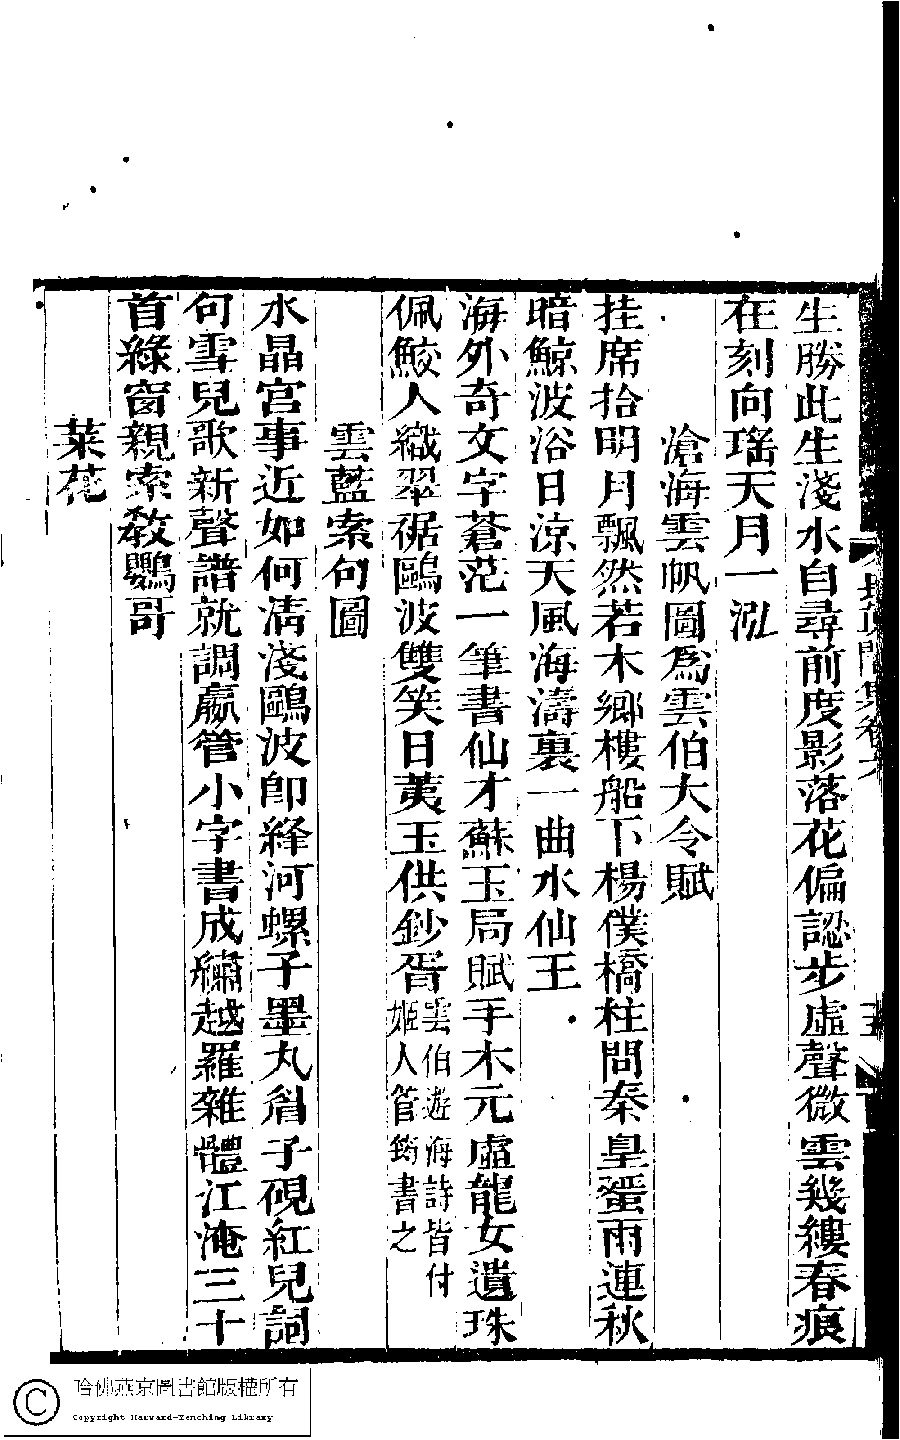 生勝此生淺水自尋前度影落花偏認步虛聲微雲幾縷春痕
在刻向瑶天月一泓
滄海雲帆圖爲雲伯大令賦
挂席拾明月飄然若木鄉樓船下楊僕橋柱問秦皇蜃雨連秋
暗鯨波浴日涼天風海濤裏一曲水仙王
海外奇文字蒼茫一筆書仙才蘇玉局賦手木元虛龍女遺珠
佩鮫人織翠裾鷗波雙笑日荑玉供鈔胥
雲伯遊海詩皆付
姬人管筠書之
雲藍索句圖
水晶宮事近如何淸淺鷗波卽絳河螺子墨丸眉子硯紅兒詞
句雪兒歌新聲譜就調嬴管小字書成繡越羅雜體江淹三十
首綠窗親索教鸚哥
菜花
五
哈佛燕京圖書館版權所有
Copyright Harvard-Yenching Library